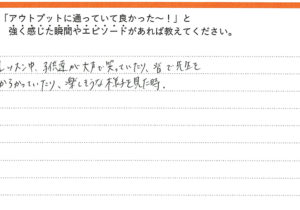 「アウトプットに通っていて良かった〜！」と
強く感じた瞬間やエピソードがあれば教えてください。
レッスン中、子供達が大声で笑っていたり、皆で先生を
からかっていたり、楽しそうな様子を見た時。